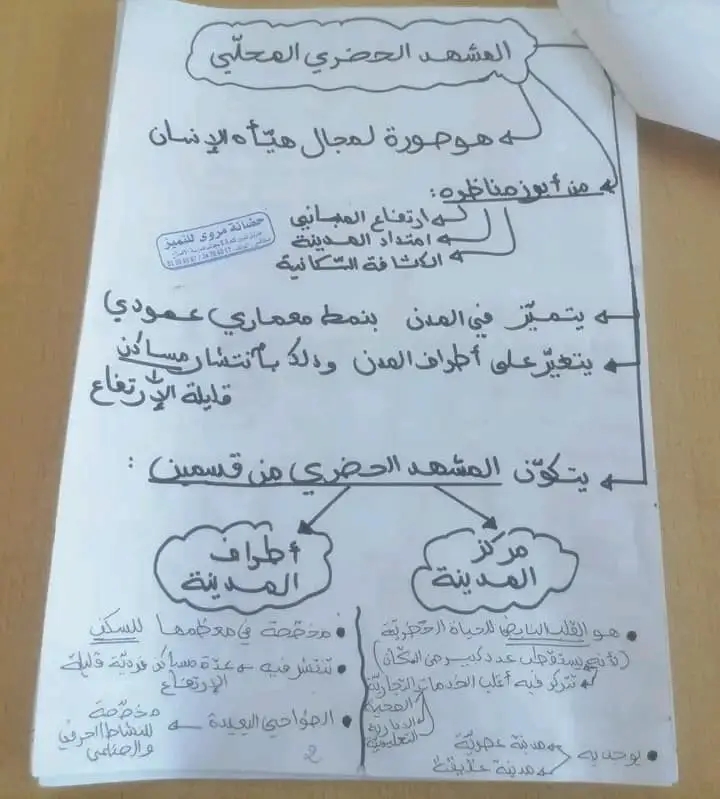 المشهد الحضري المحلّي
هو صورة لمجال هيّأه الإنسان
من أبرز مناظره:
ارتفاع المباني
امتداد المدينة
الكثافة السّكانية
حضانة مروى للتميز
يتميّز في المدن بنمط معماري عمودي
يتغيّر على أطراف المدن وذلك بانتشار مساكن
قليلة الإرتفاع
يتكوّن المشهد الحضري من قسمين:
مركز
المدينة
هو القلب النابض للحياة الحضريّة
(لأنه يستقطب عدد كبير من السكان)
تتركز فيه أغلب الخدمات التجاريّة
الصحية
الإدارية
التعليمية
يوجد به
مدينة عصريّة
مدينة عتيقة
أطراف
المدينة
مخصّصة في معظمها للسكن
تنتشر فيه عدّة مساكن فرديّة قليلة
الإرتفاع
الضواحي البعيدة
مخصّصة
للنشاط الحرفي
والصناعي
2